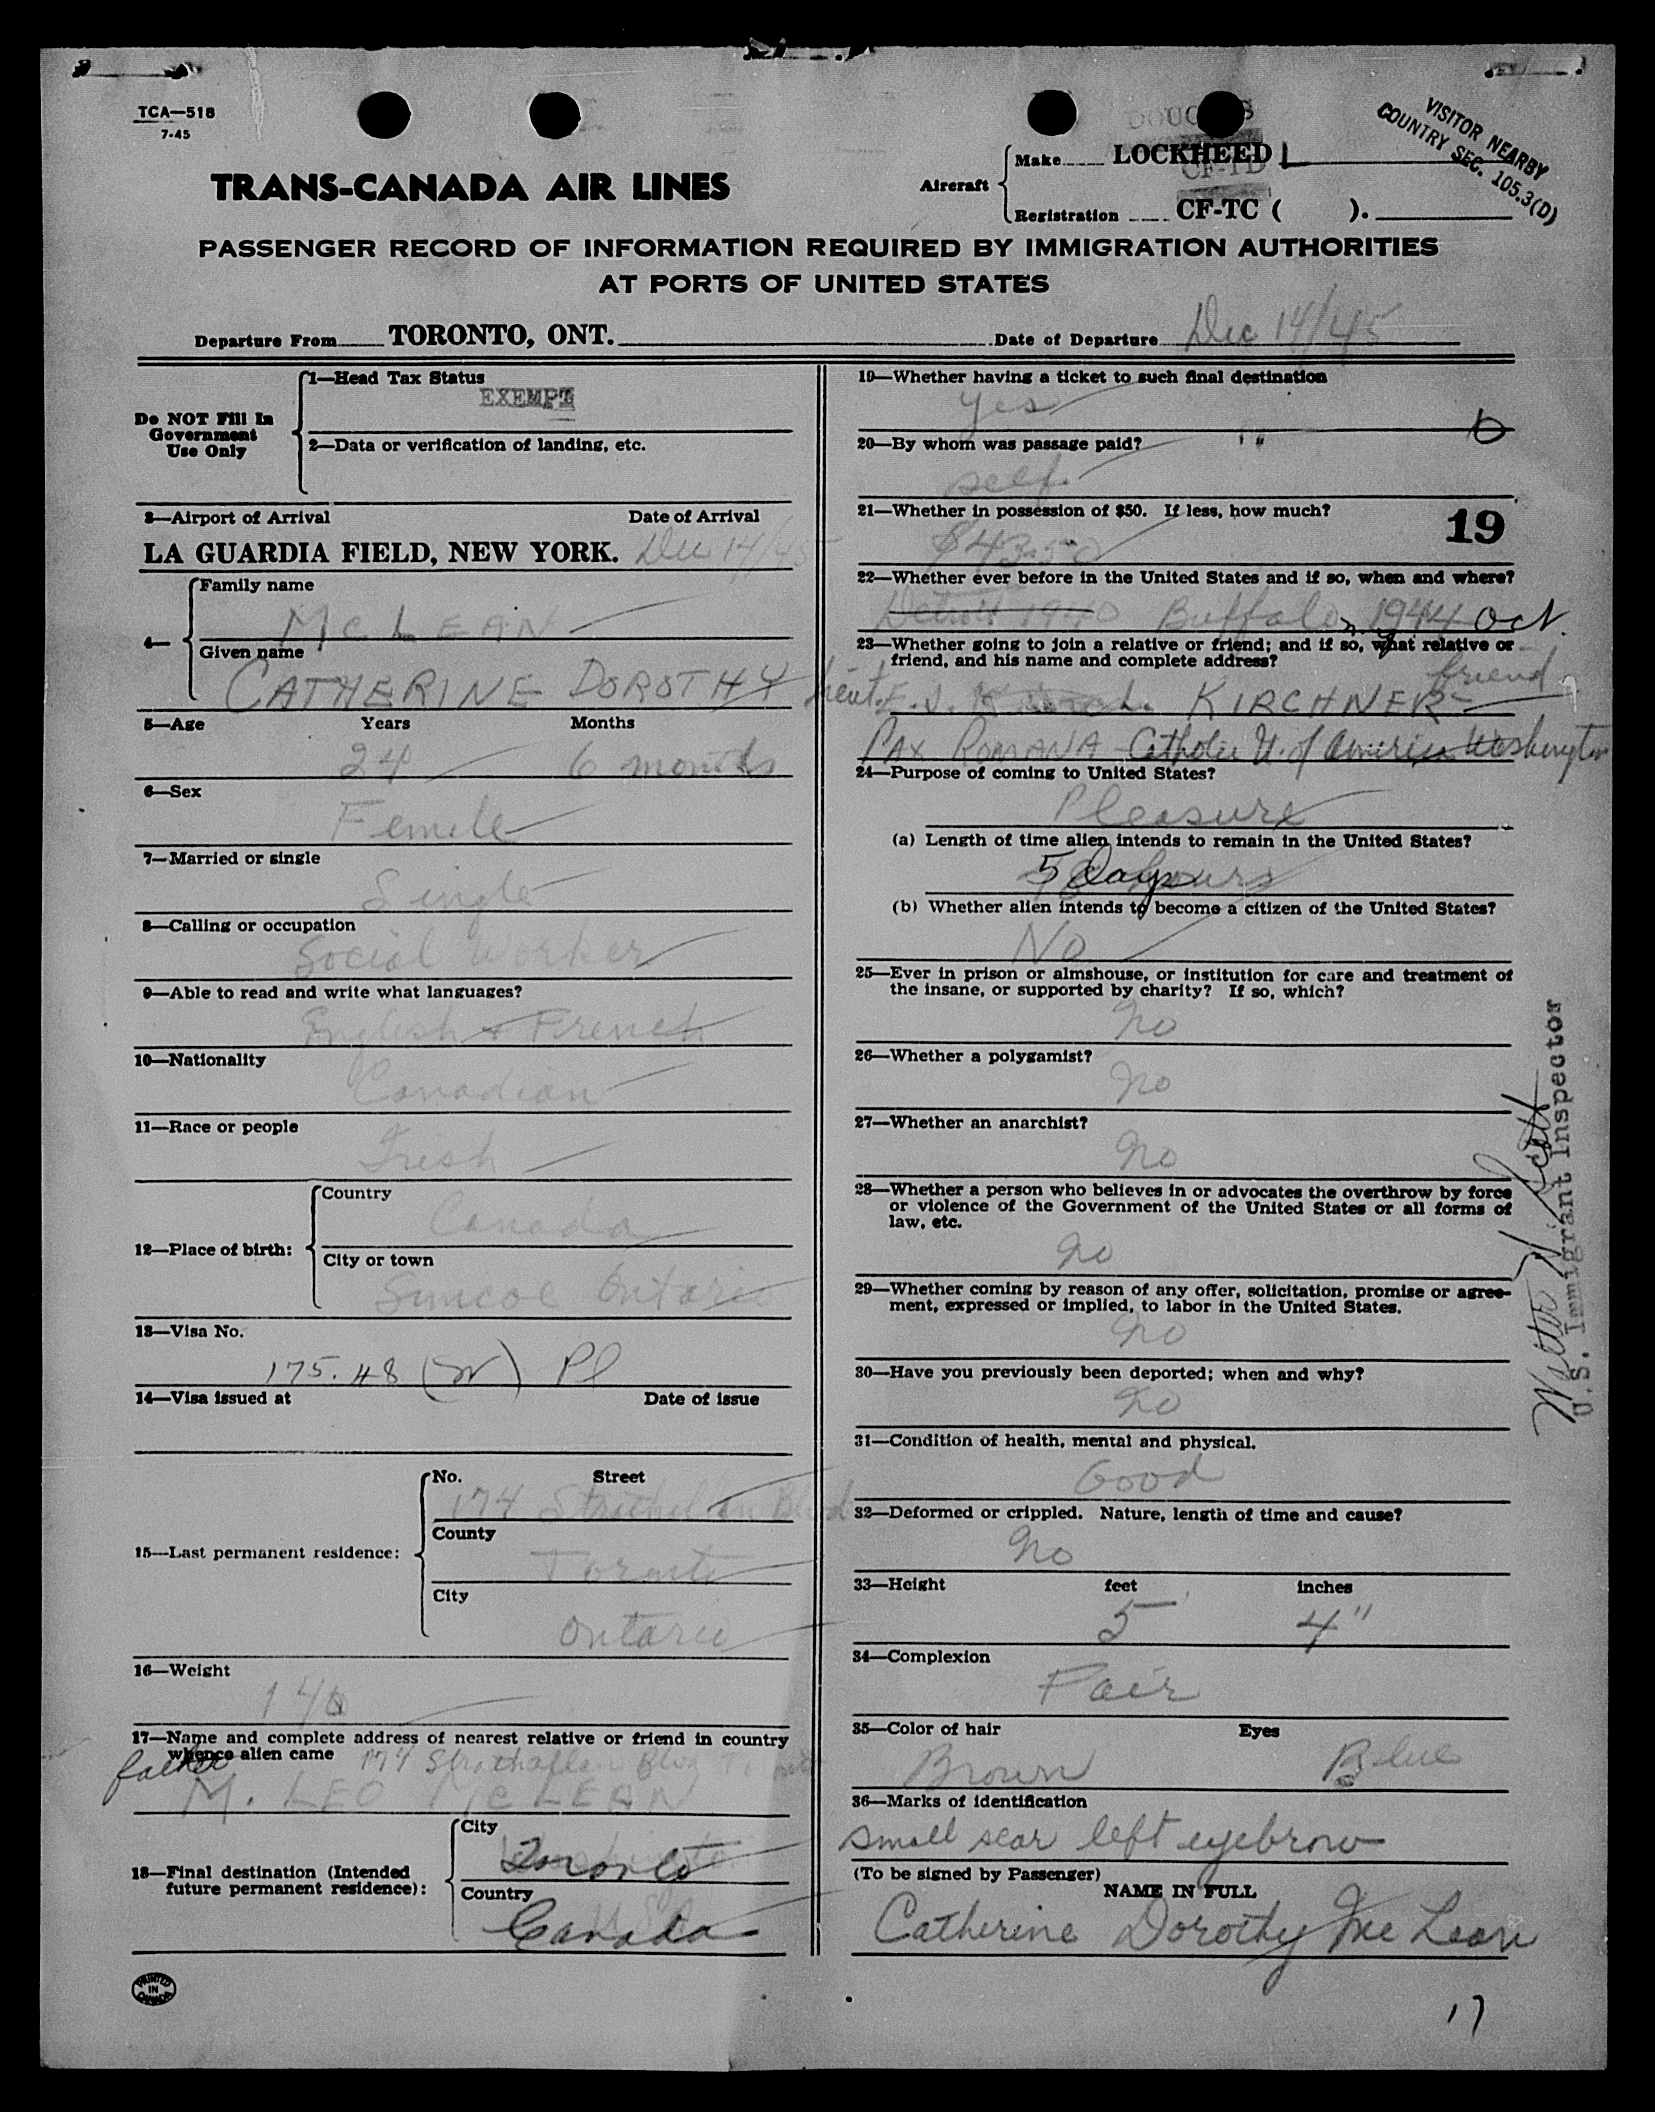 TCA—518
7-45
DOUGLAS
VISITOR NEARBY
COUNTRY SEC. 105.3(D)
Aircraft
Make LOCKHEED L
CF-TD
Registration CF-TC ( ).
TRANS-CANADA AIR LINES
PASSENGER RECORD OF INFORMATION REQUIRED BY IMMIGRATION AUTHORITIES
AT PORTS OF UNITED STATES
Departure From TORONTO, ONT. Date of Departure Dec 14/45
Do NOT Fill In
Government
Use Only
1—Head Tax Status
EXEMPT
2—Data or verification of landing, etc.
3—Airport of Arrival Date of Arrival
LA GUARDIA FIELD, NEW YORK. Dec 14/45
4—
Family name
McLEAN
Given name
CATHERINE DOROTHY
5—Age Years Months
24 6 months
6—Sex
Female
7—Married or single
Single
8—Calling or occupation
Social Worker
9—Able to read and write what languages?
English + French
10—Nationality
Canadian
11—Race or people
Iresh
12—Place of birth:
Country
Canada
City or town
Simcoe Ontario
13—Visa No.
175.48 (W) Pl
14—Visa issued at Date of issue
15—Last permanent residence:
No. Street
174 Strathallan Blvd
County
Toronto
City
Ontario
16—Weight
140
17—Name and complete address of nearest relative or friend in country
whence alien came 174 Strathallan Blvd Toronto
father
M. LEO McLEAN
18—Final destination (Intended
future permanent residence):
City
Toronto
Country
Canada
19—Whether having a ticket to such final destination
yes
20—By whom was passage paid?
self
21—Whether in possession of $50. If less, how much?
19
$43.50
22—Whether ever before in the United States and if so, when and where?
Detroit 1940 Buffalo n.y 1944 Oct.
23—Whether going to join a relative or friend; and if so, what relative or
friend, and his name and complete address?
friend
Lieut. E. J. KIRCHNER
PAX ROMANA Catholic U. of America Washington
24—Purpose of coming to United States?
Pleasure
(a) Length of time alien intends to remain in the United States?
5 Days
(b) Whether alien intends to become a citizen of the United States?
No
25—Ever in prison or almshouse, or institution for care and treatment of
the insane, or supported by charity? If so, which?
No
26—Whether a polygamist?
No
27—Whether an anarchist?
No
28—Whether a person who believes in or advocates the overthrow by force
or violence of the Government of the United States or all forms of
law, etc.
No
29—Whether coming by reason of any offer, solicitation, promise or agree-
ment, expressed or implied, to labor in the United States.
No
30—Have you previously been deported; when and why?
No
31—Condition of health, mental and physical.
Good
32—Deformed or crippled. Nature, length of time and cause?
No
33—Height feet inches
5' 4"
34—Complexion
Fair
35—Color of hair Eyes
Brown Blue
36—Marks of identification
small scar left eyebrow
(To be signed by Passenger)
NAME IN FULL
Catherine Dorothy Mc Lean
U.S. Immigrant Inspector
PRINTED
IN
CANADA
17